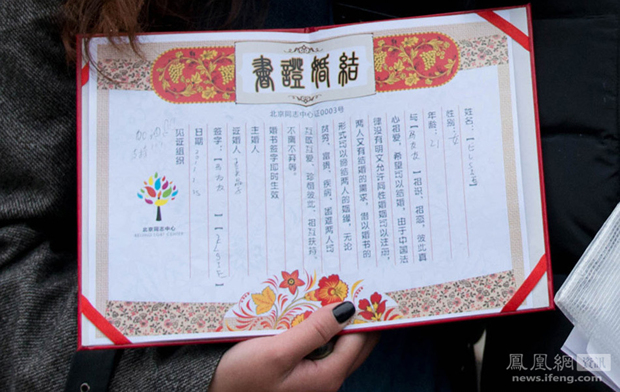 結婚證書
北京同志中心证0003号
姓名：【
性别：女
年龄：21
与【 】相识、相恋，彼此真
心相爱，希望可以结婚，由于中国法
律没有明文允许同性婚姻可以注册，
两人又有结婚的需求，借以婚书的
形式可以缔结两人的婚姻，无论
贫穷、富贵、疾病、困难两人均
相敬相爱，珍惜彼此，相互扶持，
不离不弃等。
婚书签字即时生效
主婚人
证婚人
签字：【 】【 】
日期：
见证组织
北京同志中心
BEIJING LGBT CENTER
鳳凰網 資訊
news.ifeng.com